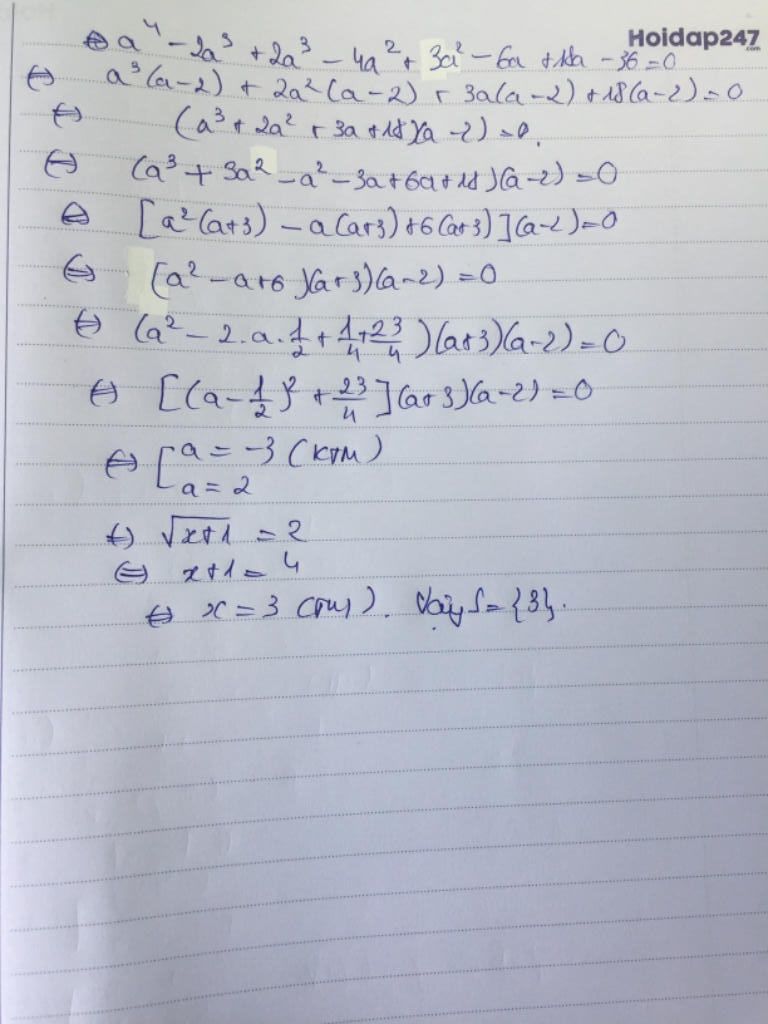 Hoidap247.com
⇔ a⁴ - 2a³ + 2a³ - 4a² + 3a² - 6a + 18a - 36 = 0
⇔ a³(a-2) + 2a²(a-2) + 3a(a-2) + 18(a-2) = 0
⇔ (a³ + 2a² + 3a + 18)(a-2) = 0.
⇔ (a³ + 3a² - a² - 3a + 6a + 18)(a-2) = 0
⇔ [a²(a+3) - a(a+3) + 6(a+3)](a-2) = 0
⇔ (a² - a + 6)(a+3)(a-2) = 0
⇔ (a² - 2.a.1/2 + 1/4 + 23/4)(a+3)(a-2) = 0
⇔ [(a - 1/2)² + 23/4](a+3)(a-2) = 0
⇔ [a = -3 (KTM)
a = 2
⇔ √(x+1) = 2
⇔ x+1 = 4
⇔ x = 3 (TM). Vậy S = {3}.